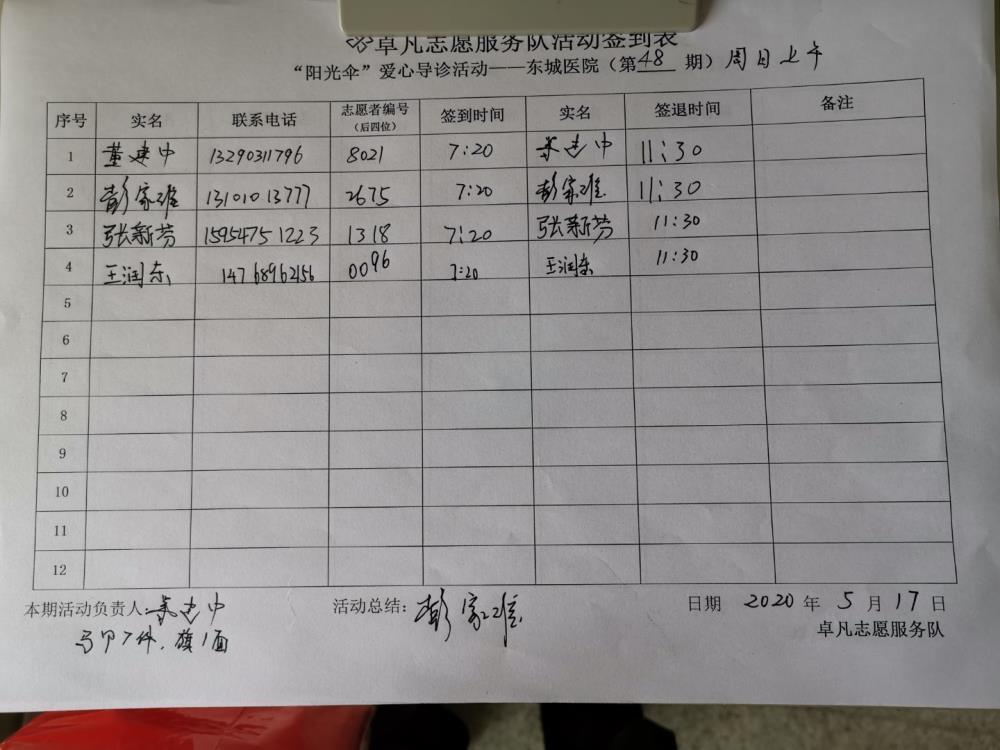 卓凡志愿服务队活动签到表
“阳光伞”爱心导诊活动——东城医院（第48期）周日上午
序号 实名 联系电话 志愿者编号（后四位） 签到时间 实名 签退时间 备注
1 董建中 13290311796 8021 7:20 董建中 11:30
2 彭家雅 13101013777 2675 7:20 彭家雅 11:30
3 张新芳 15954751223 1318 7:20 张新芳 11:30
4 王润东 14768962156 0096 7:20 王润东 11:30
5
6
7
8
9
10
11
12
本期活动负责人:董建中 活动总结:彭家雅 日期 2020年5月17日
马甲7件,旗1面 卓凡志愿服务队